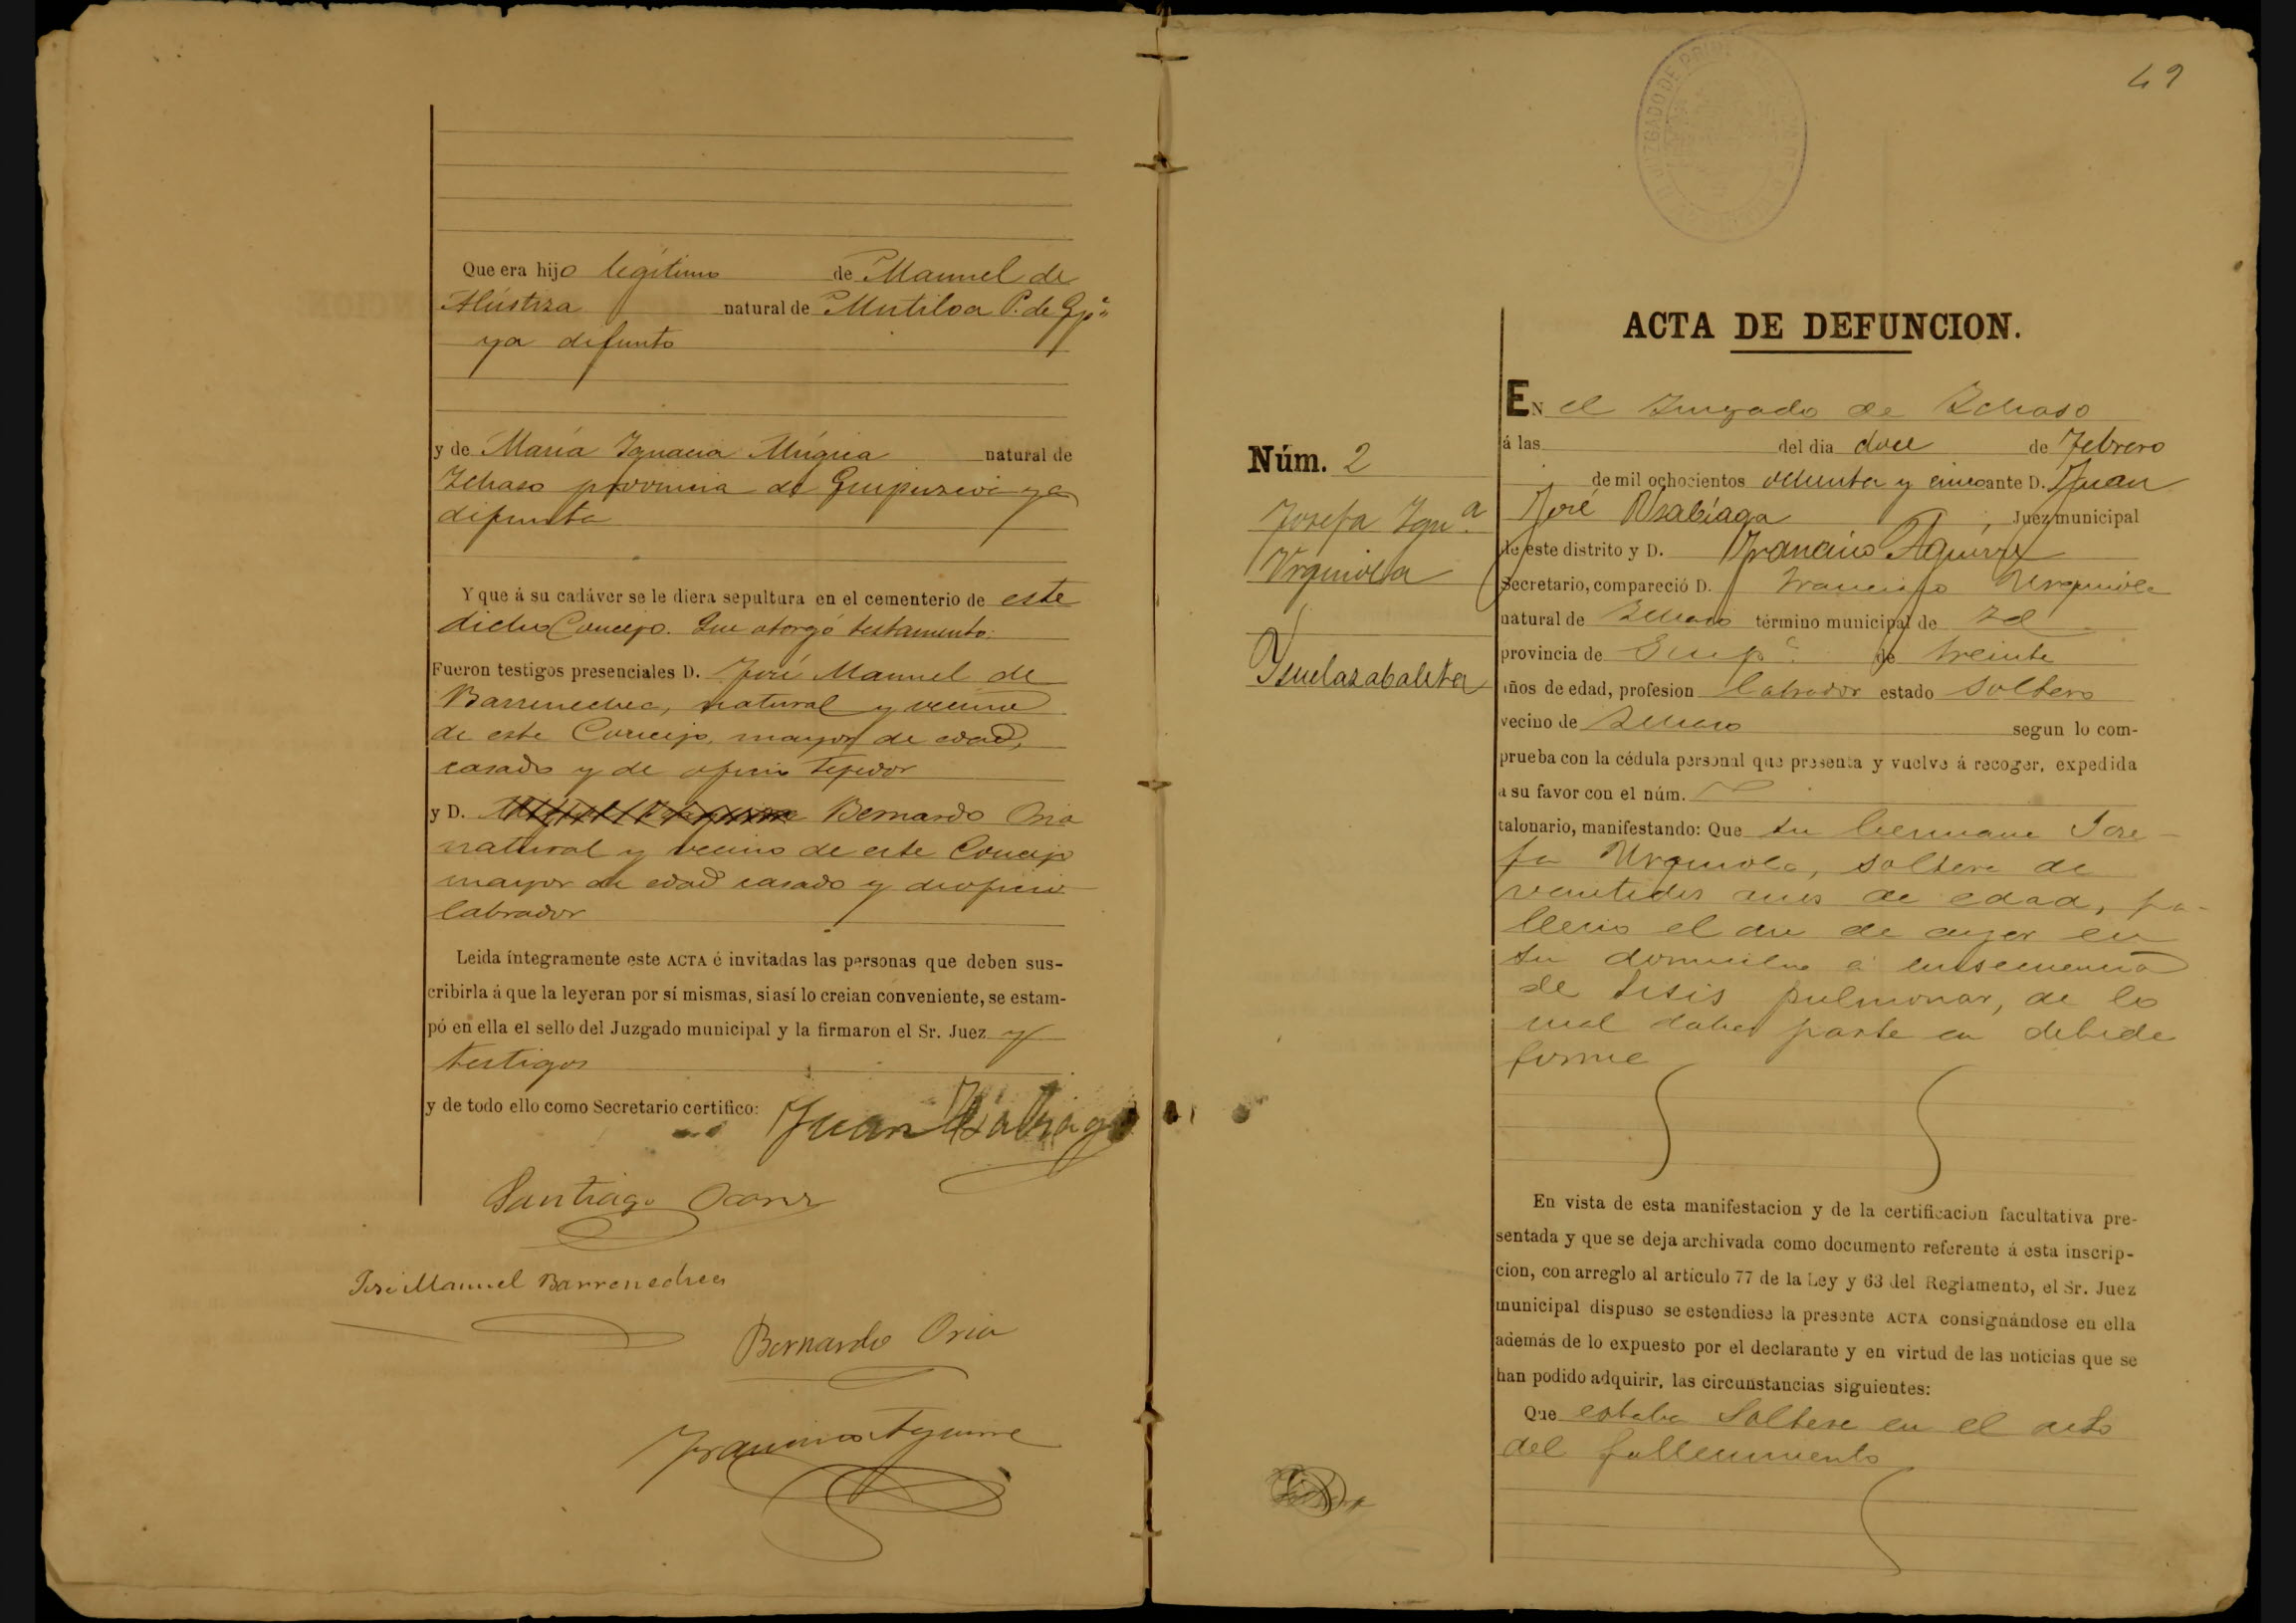 Que era hijo legitimo de Manuel de
Alústiza natural de Mutiloa P. de Gpª
ya difunto
y de María Ignacia Múgica natural de
Ichaso provincia de Guipuzcoa ya
difunta
Y que á su cadáver se le diera sepultura en el cementerio de este
dicho Concejo. Que otorgó testamento.
Fueron testigos presenciales D. José Manuel de
Barrenechea, natural y vecino
de este Concejo, mayor de edad,
casado y de oficio tejedor
y D. Bernardo Oria
natural y vecino de este Concejo
mayor de edad casado y de oficio
labrador
Leida íntegramente este ACTA é invitadas las personas que deben sus-
cribirla á que la leyeran por sí mismas, si así lo creian conveniente, se estam-
pó en ella el sello del Juzgado municipal y la firmaron el Sr. Juez y
testigos
y de todo ello como Secretario certifico:
Juan
Santiago
José Manuel Barrenechea
Bernardo Oria
Francisco Aguirre
49
ACTA DE DEFUNCION.
Núm. 2
Josefa Ignª
Urquiola
EN el Juzgado de Ichaso
á las del dia doce de Febrero
de mil ochocientos ochenta y cinco ante D. Juan
José Usabiaga, Juez municipal
de este distrito y D. Francisco Aguirre
Secretario, compareció D. Francisco Urquiola
natural de Ichaso término municipal de Id
provincia de Guipª de treinta
años de edad, profesion labrador estado soltero
vecino de Ichaso segun lo com-
prueba con la cédula personal que presenta y vuelve á recoger, expedida
a su favor con el núm.
talonario, manifestando: Que su hermana Jose-
fa Urquiola, soltera de
veintidos años de edad, fa-
llecio el dia de ayer en
su domicilio á consecuencia
de tisis pulmonar, de lo
cual daba parte en debida
forma
En vista de esta manifestacion y de la certificacion facultativa pre-
sentada y que se deja archivada como documento referente á esta inscrip-
cion, con arreglo al artículo 77 de la Ley y 63 del Reglamento, el Sr. Juez
municipal dispuso se estendiese la presente ACTA consignándose en ella
además de lo expuesto por el declarante y en virtud de las noticias que se
han podido adquirir, las circunstancias siguientes:
Que estaba Soltera en el acto
del fallecimiento